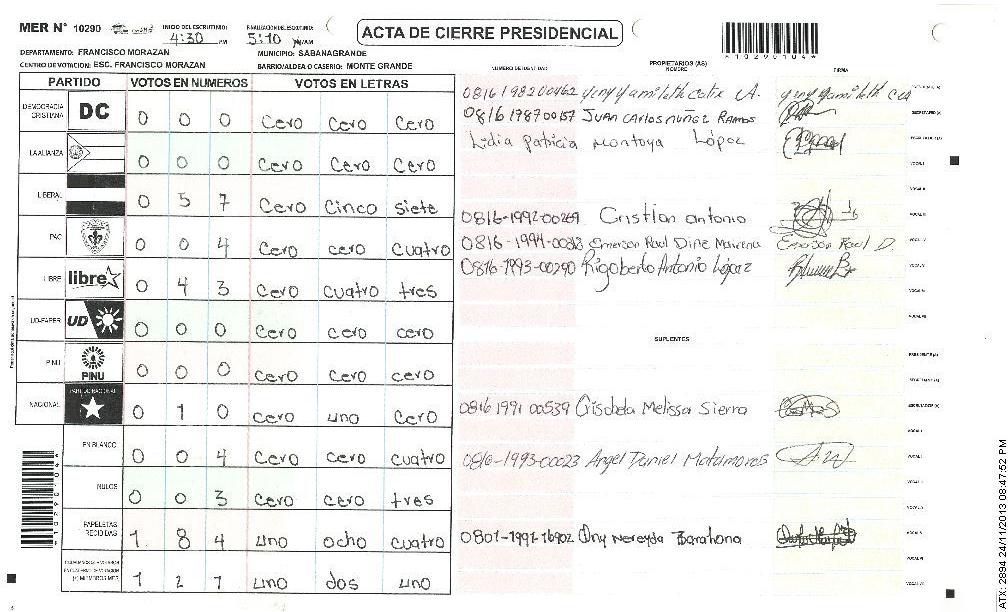 MER N° 10290 INICIO DEL ESCRUTINIO: 4:30 PM FINALIZACION DEL ESCRUTINIO: 5:10 ACTA DE CIERRE PRESIDENCIAL *10290104*
DEPARTAMENTO: FRANCISCO MORAZAN MUNICIPIO: SABANAGRANDE
CENTRO DE VOTACION: ESC. FRANCISCO MORAZAN BARRIO/ALDEA O CASERIO: MONTE GRANDE
NUMERO DE IDENTIDAD PROPIETARIOS (AS) NOMBRE FIRMA
PARTIDO VOTOS EN NUMEROS VOTOS EN LETRAS
DEMOCRACIA CRISTIANA DC 0 0 0 Cero Cero Cero
LA ALIANZA 0 0 0 Cero Cero Cero
LIBERAL 0 5 7 Cero Cinco siete
PAC 0 0 4 Cero cero cuatro
LIBRE libre 0 4 3 Cero cuatro tres
UD-FAPER UD 0 0 0 Cero cero cero
PINU PINU 0 0 0 Cero cero cero
NACIONAL PARTIDO NACIONAL 0 1 0 cero uno Cero
EN BLANCO 0 0 4 Cero cero cuatro
NULOS 0 0 3 Cero cero tres
PAPELETAS RECIBIDAS 1 8 4 uno ocho cuatro
(+) MIEMBROS MER 1 2 1 uno dos uno
0816 1982 00462
0816 1987 00157 JUAN CARLOS NUÑEZ RAMOS
Lidia Patricia Montoya López
0816-1992-00269 Cristian antonio
Emerson Raul
0816-1993-00290 Rigoberto Antonio López
SUPLENTES
0816 1991 00539 Melissa Sierra
0816-1993-00023 Angel Daniel Matamoros
0801-1991-16902 Nereyda Barahona
ATX: 2894 24/11/2013 08:47:52 PM